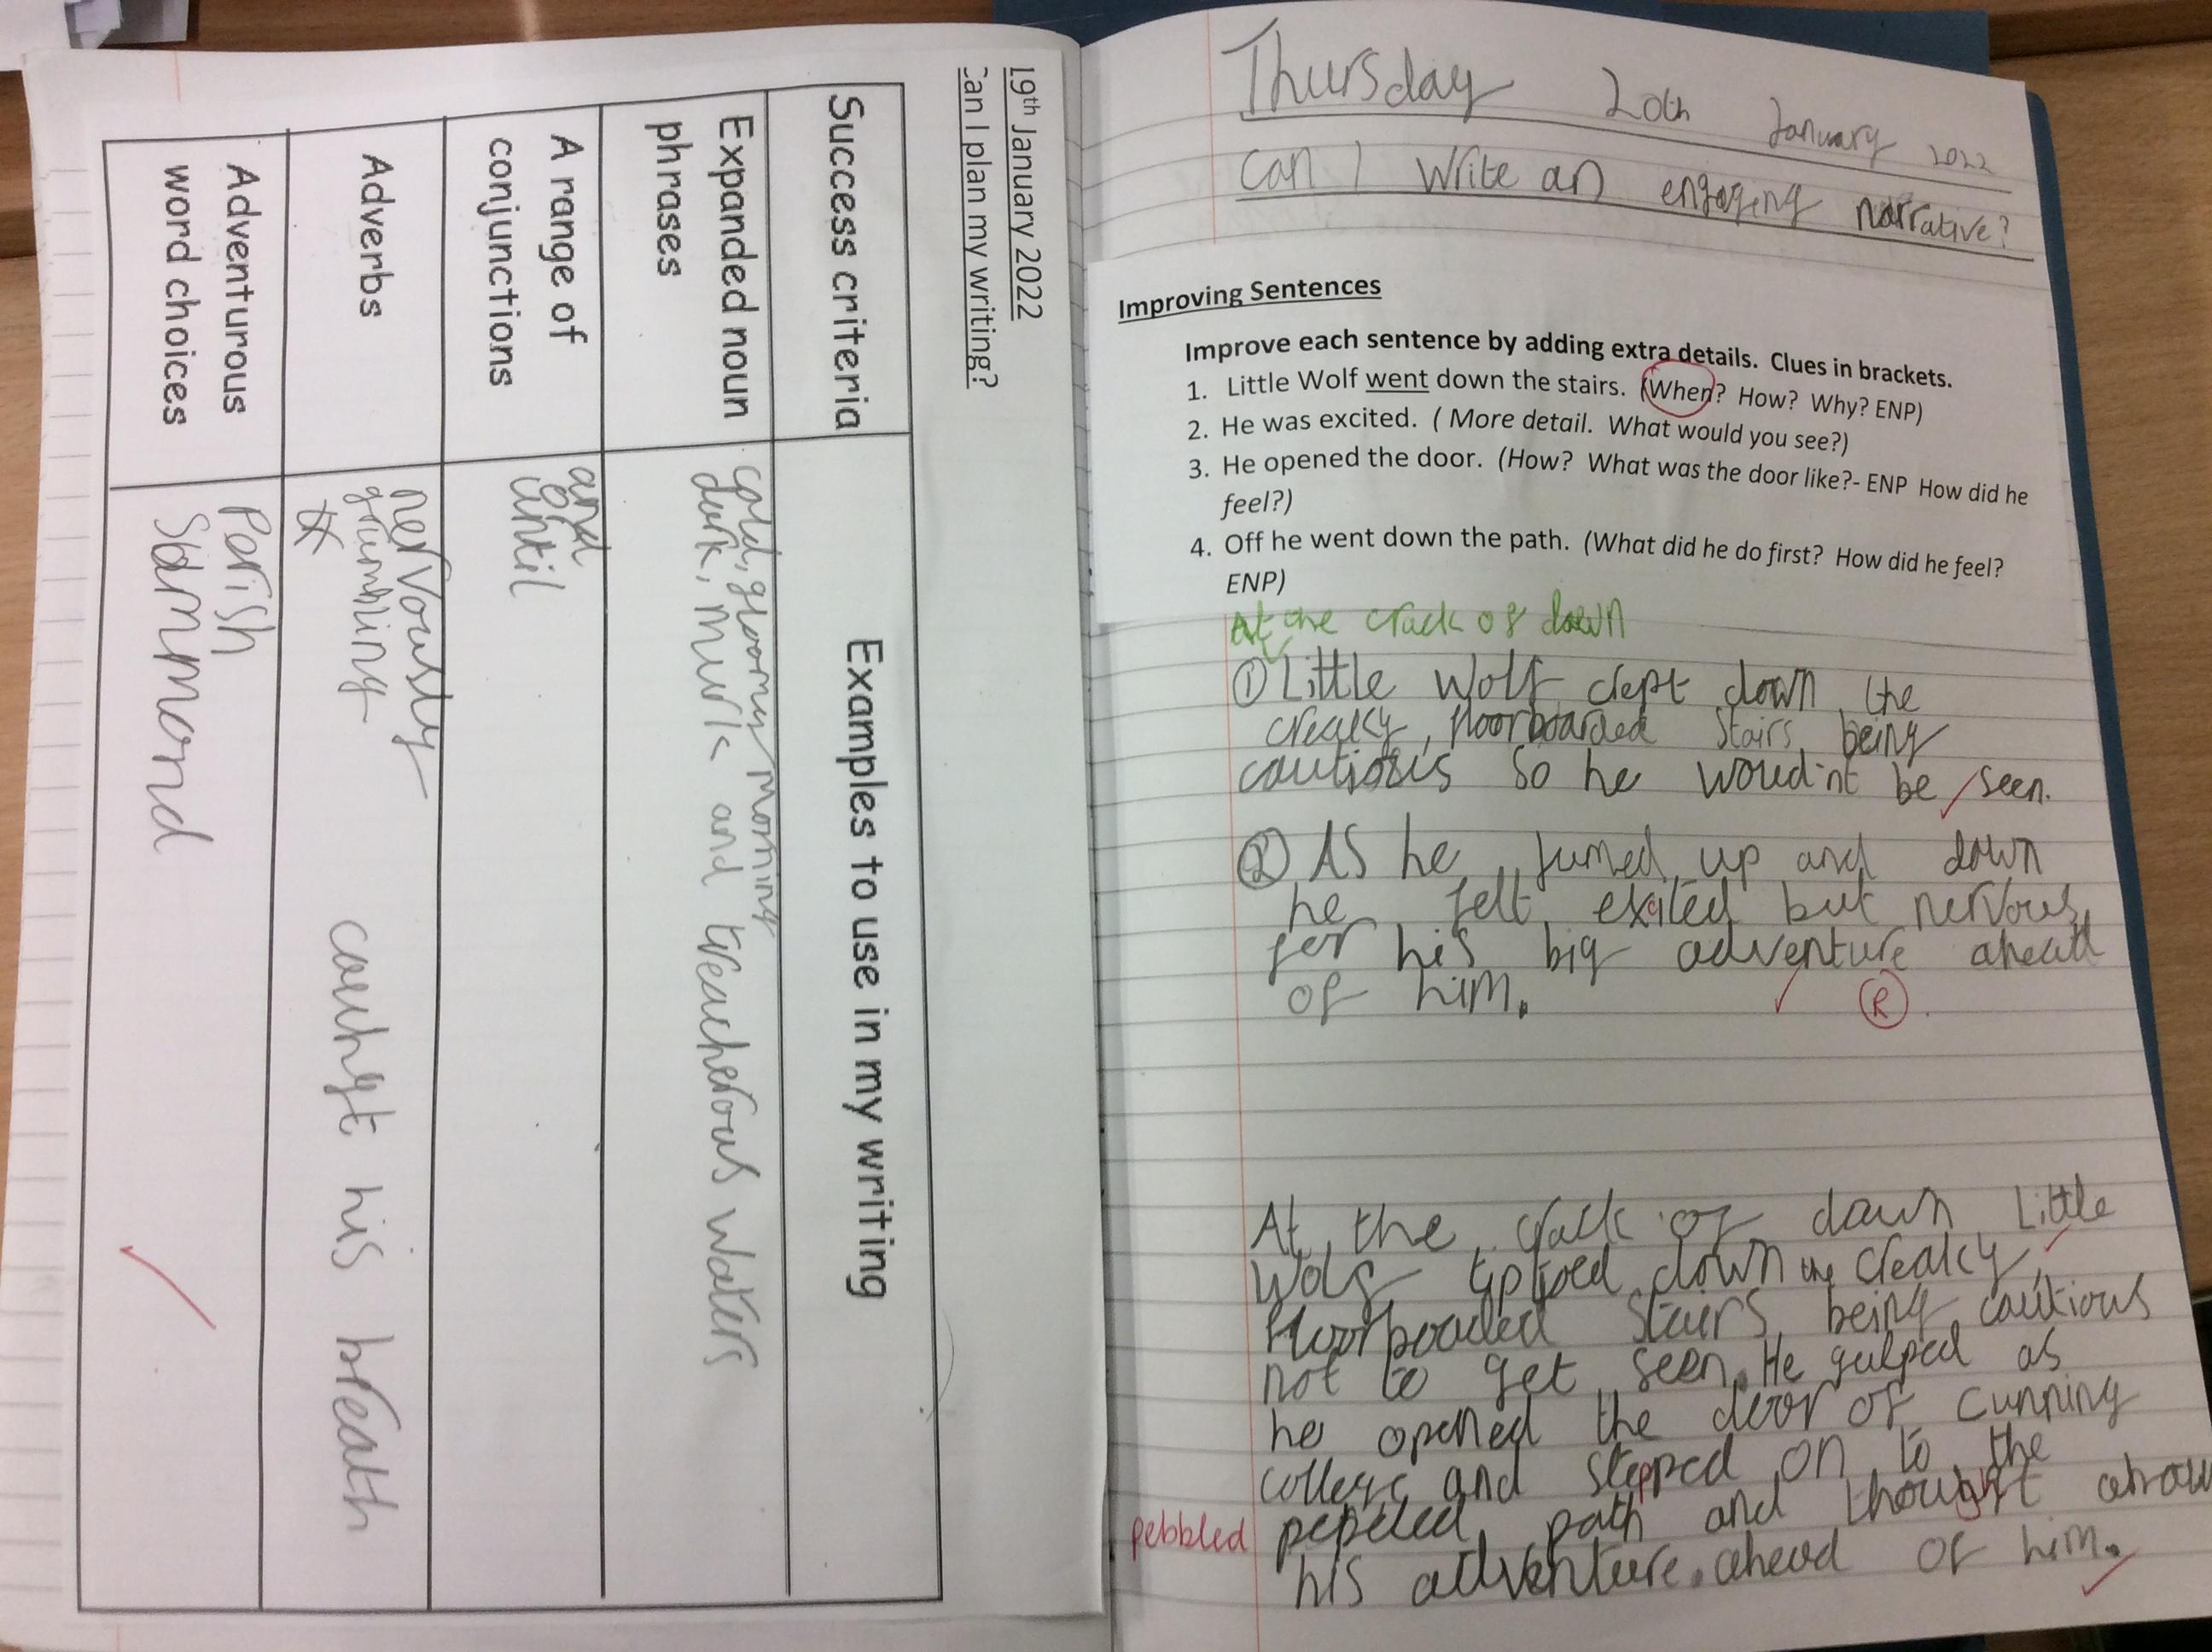 19th January 2022
Can I plan my writing?
Success criteria
Examples to use in my writing
Expanded noun phrases
cold, gloomy morning
dark, murk and treacherous waters
A range of conjunctions
and
until
Adverbs
nervously
grumbling
caught his breath
Adventurous word choices
Perish
Thursday 20th January 2022
can I write an engageng narrative?
Improving Sentences
Improve each sentence by adding extra details. Clues in brackets.
1. Little Wolf went down the stairs. (When? How? Why? ENP)
2. He was excited. ( More detail. What would you see?)
3. He opened the door. (How? What was the door like?- ENP How did he
feel?)
4. Off he went down the path. (What did he do first? How did he feel?
ENP)
At the crack of dawn
① Little Wolf crept down the
creaky, floorboarded stairs being
cautious so he woud'nt be seen.
② As he jumed up and down
he felt excited but nervous
for his big adventure ahead
of him.
R
At the crack of dawn Little
Wolf tiptoed down the creaky,
floorboaded stairs being cautious
not to get seen. He gulped as
he opened the door of cunning
college and stepped on to the
pebbled pepeled path and thought
his adventure ahead of him.